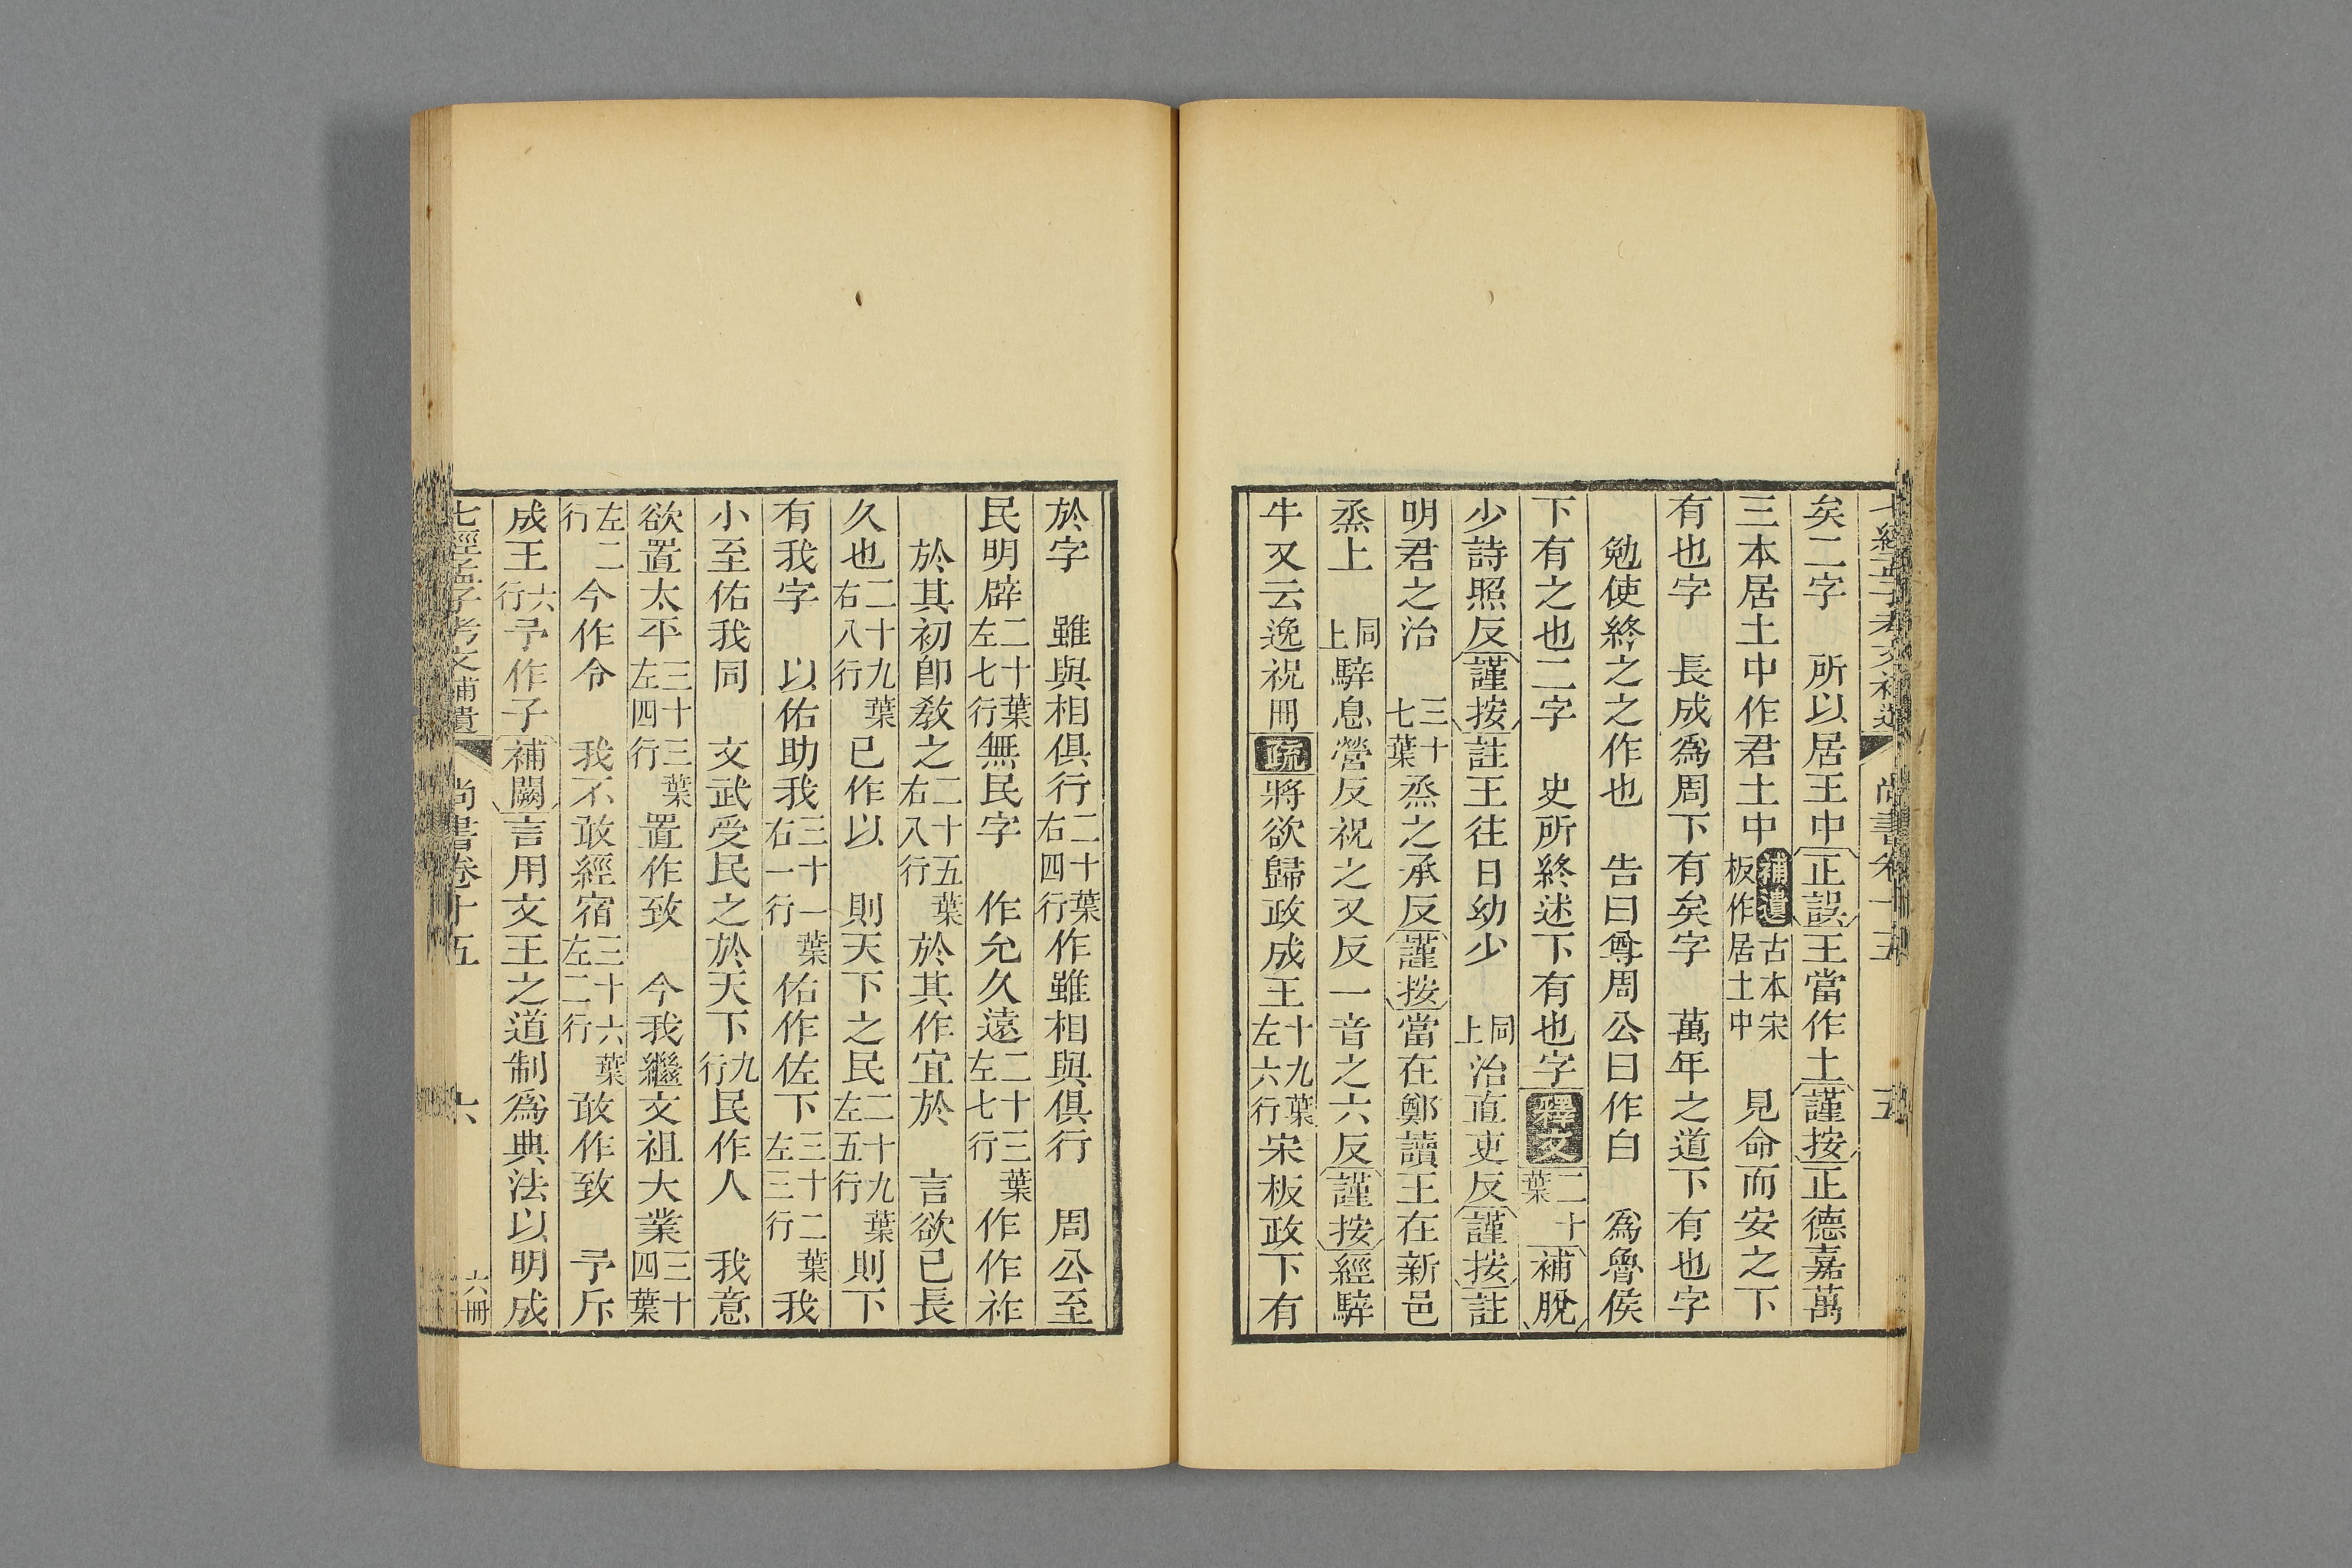 七經孟子考文補遺 尚書卷十五 五
矣二字 所以居王中正誤王當作土謹按正德嘉萬
三本居土中作君土中補遺古本宋板作居土中 見命而安之下
有也字 長成爲周下有矣字 萬年之道下有也字
勉使終之之作也 告曰尊周公曰作白 爲魯侯
下有之也二字 史所終述下有也字釋文二十葉補脫
少詩照反謹按註王往日幼少 同上治直吏反謹按註
明君之治 三十七葉烝之承反謹按當在鄭讀王在新邑
烝上 同上騂息營反祝之又反一音之六反謹按經騂
牛又云逸祝冊疏將欲歸政成王十九葉左六行宋板政下有
於字 雖與相俱行二十葉右四行作雖相與俱行 周公至
民明辟二十葉左七行無民字 作允久遠二十三葉左七行作作祚
於其初卽敎之二十五葉右八行於其作宜於 言欲已長
久也二十九葉右八行已作以 則天下之民二十九葉左五行則下
有我字 以佑助我三十一葉右一行佑作佐下三十二葉左三行我
小至佑我同 文武受民之於天下九行民作人 我意
欲置太平三十三葉左四行置作致 今我繼文祖大業三十四葉
左二行今作令 我不敢經宿三十六葉左二行敢作致 予斥
成王六行予作子補闕言用文王之道制爲典法以明成
七經孟子考文補遺 尚書卷十五 六 六冊